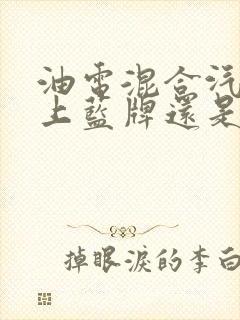 油電混合汽
上藍牌還是
掉眼淚的李白